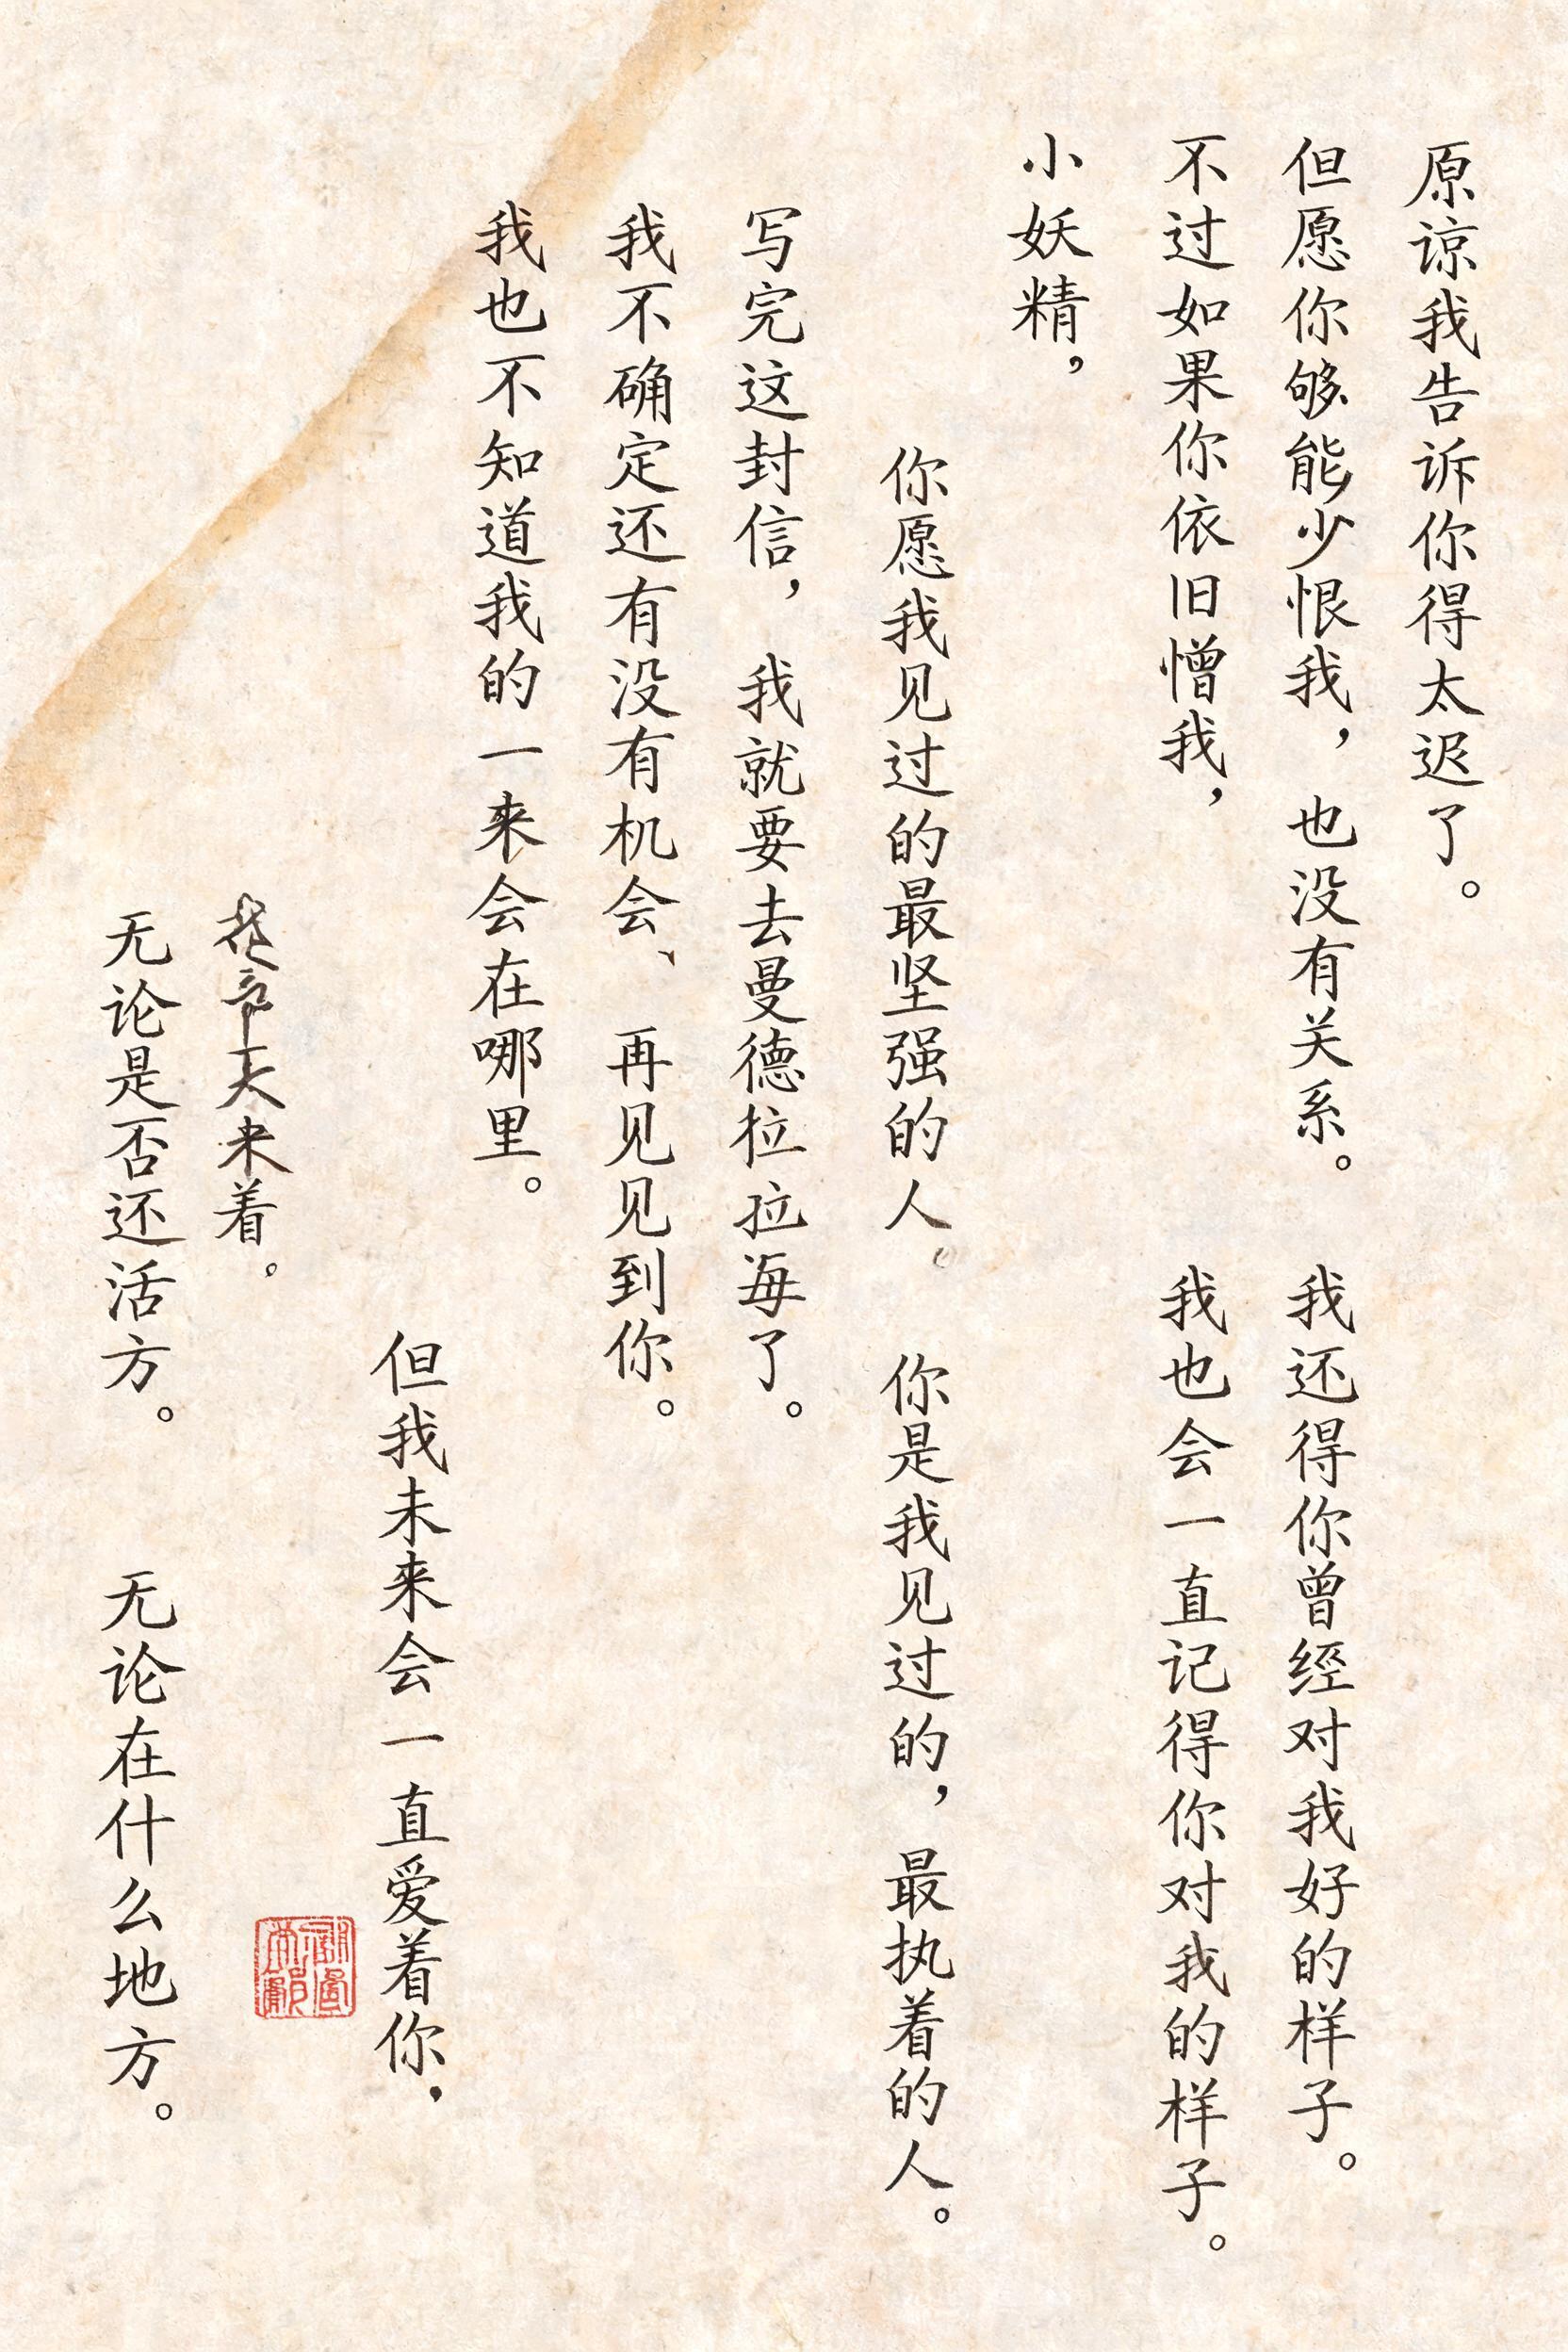 原谅我告诉你得太迟了。
但愿你够能少恨我，也没有关系。
我还得你曾经对我好的样子。
不过如果你依旧憎我，
我也会一直记得你对我的样子。
小妖精，
你愿我见过的最坚强的人。
你是我见过的，最执着的人。
写完这封信，我就要去曼德拉拉海了。
我不确定还有没有机会、再见见到你。
我也不知道我的一来会在哪里。
但我未来会一直爱着你，
来着。
无论是否还活方。
无论在什么地方。